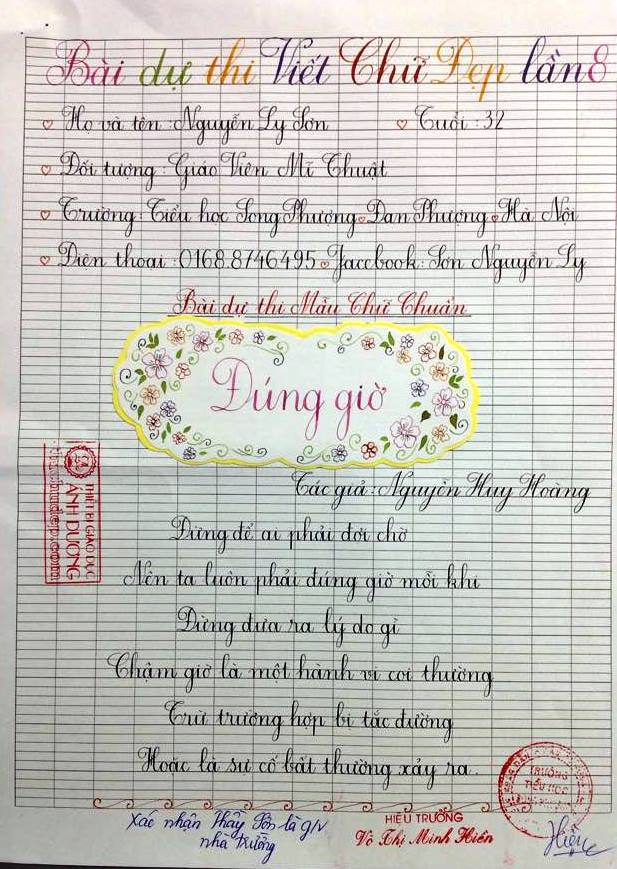 Bài dự thi Viết Chữ Đẹp lần 8
Họ và tên : Nguyễn Ly Sơn Tuổi : 32
Đối tượng : Giáo Viên Mĩ Thuật
Trường : Tiểu học Song Phượng Đan Phượng Hà Nội
Điện thoại : 0168.8746495 Facebook : Sơn Nguyễn Ly
Bài dự thi Mẫu Chữ Chuẩn
Đúng giờ
Tác giả : Nguyễn Huy Hoàng
Đừng để ai phải đợi chờ
Nên ta luôn phải đúng giờ mỗi khi
Đừng đưa ra lý do gì
Chậm giờ là một hành vi coi thường
Trừ trường hợp bị tắc đường
Hoặc là sự cố bất thường xảy ra.
THIẾT BỊ GIÁO DỤC
ÁNH DƯƠNG
Xác nhận thầy Sơn là g/v
nhà trường
HIỆU TRƯỞNG
Võ Thị Minh Hiền
TRƯỜNG
TIỂU HỌC
Hiền